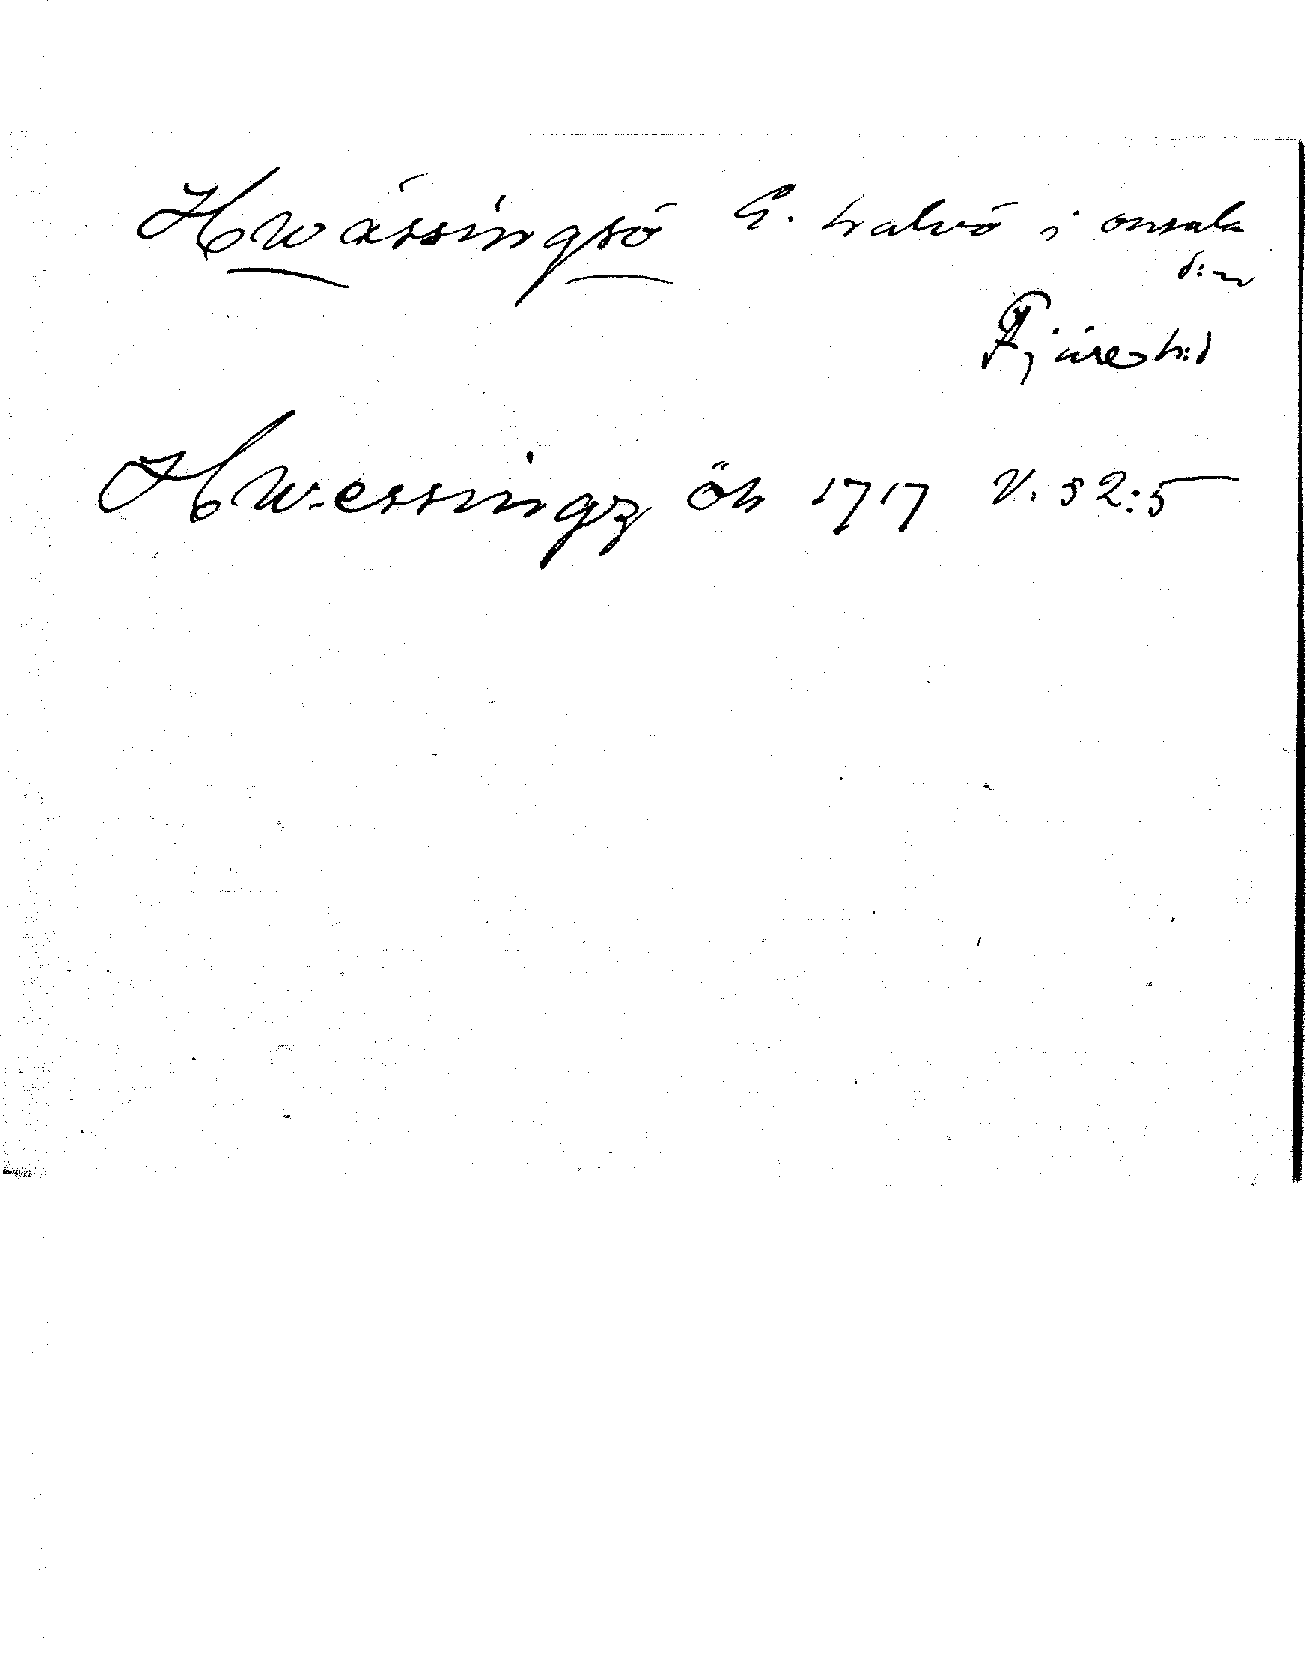 Hwässingsö G. halvö i onsala
s:n
Fjäres h:d
Hwessingz öh 1717 V. 82:5